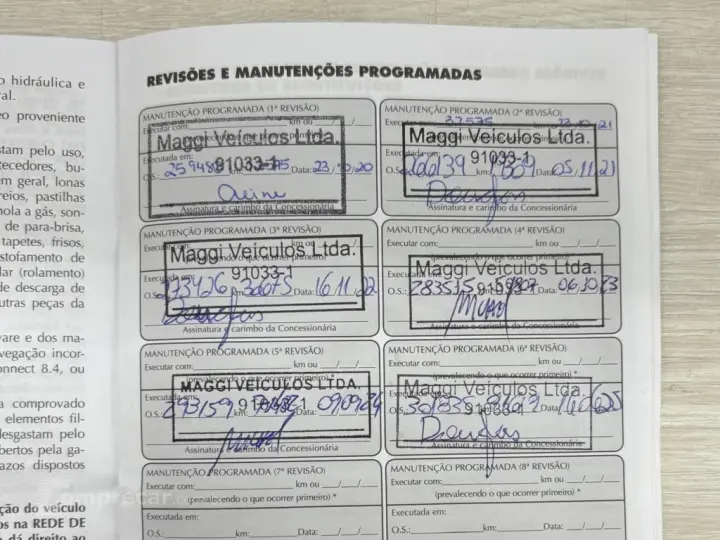 REVISÕES E MANUTENÇÕES PROGRAMADAS
o hidráulica e
ral.
eo proveniente
stam pelo uso,
tecedores, bu-
em geral, lonas
reios, pastilhas
nola a gás, son-
de para-brisa,
tapetes, frisos,
stofamento de
lar (rolamento)
de descarga de
utras peças da
are e dos ma-
vegação incor-
onnect 8.4, ou
a comprovado
elementos fil-
desgastam pelo
bertos pela ga-
azos dispostos
ção do veículo
os na REDE DE
dá direito ao
MANUTENÇÃO PROGRAMADA (1ª REVISÃO)
Executar com: km ou
Maggi Veículos Ltda.
91033-1
Executada em:
O.S.: Data: 23/10/20
Assinatura e carimbo da Concessionária
MANUTENÇÃO PROGRAMADA (2ª REVISÃO)
Maggi Veículos Ltda.
91033-1
km: Data: 05/11/21
Assinatura e carimbo da Concessionária
MANUTENÇÃO PROGRAMADA (3ª REVISÃO)
Executar com: km ou
Maggi Veículos Ltda.
91033-1
O.S.: 273426 Data: 16/11/22
Assinatura e carimbo da Concessionária
MANUTENÇÃO PROGRAMADA (4ª REVISÃO)
Executar com: km ou
Maggi Veículos Ltda.
91033-1
O.S.: Data: 06/10/23
Assinatura e carimbo da Concessionária
MANUTENÇÃO PROGRAMADA (5ª REVISÃO)
Executar com: km ou
(prevalecendo o que ocorrer primeiro) *
MAGGI VEÍCULOS LTDA.
91033-1
O.S.: 293159 km: Data: 09/09/24
Assinatura e carimbo da Concessionária
MANUTENÇÃO PROGRAMADA (6ª REVISÃO)
Executar com: km ou
(prevalecendo o que ocorrer primeiro) *
Maggi Veículos Ltda.
91033-1
O.S.: Data:
Assinatura e carimbo da Concessionária
MANUTENÇÃO PROGRAMADA (7ª REVISÃO)
Executar com: km ou
(prevalecendo o que ocorrer primeiro) *
Executada em:
O.S.: km: Data:
MANUTENÇÃO PROGRAMADA (8ª REVISÃO)
Executar com: km ou
(prevalecendo o que ocorrer primeiro) *
Executada em:
O.S.: km: Data:
comprecar